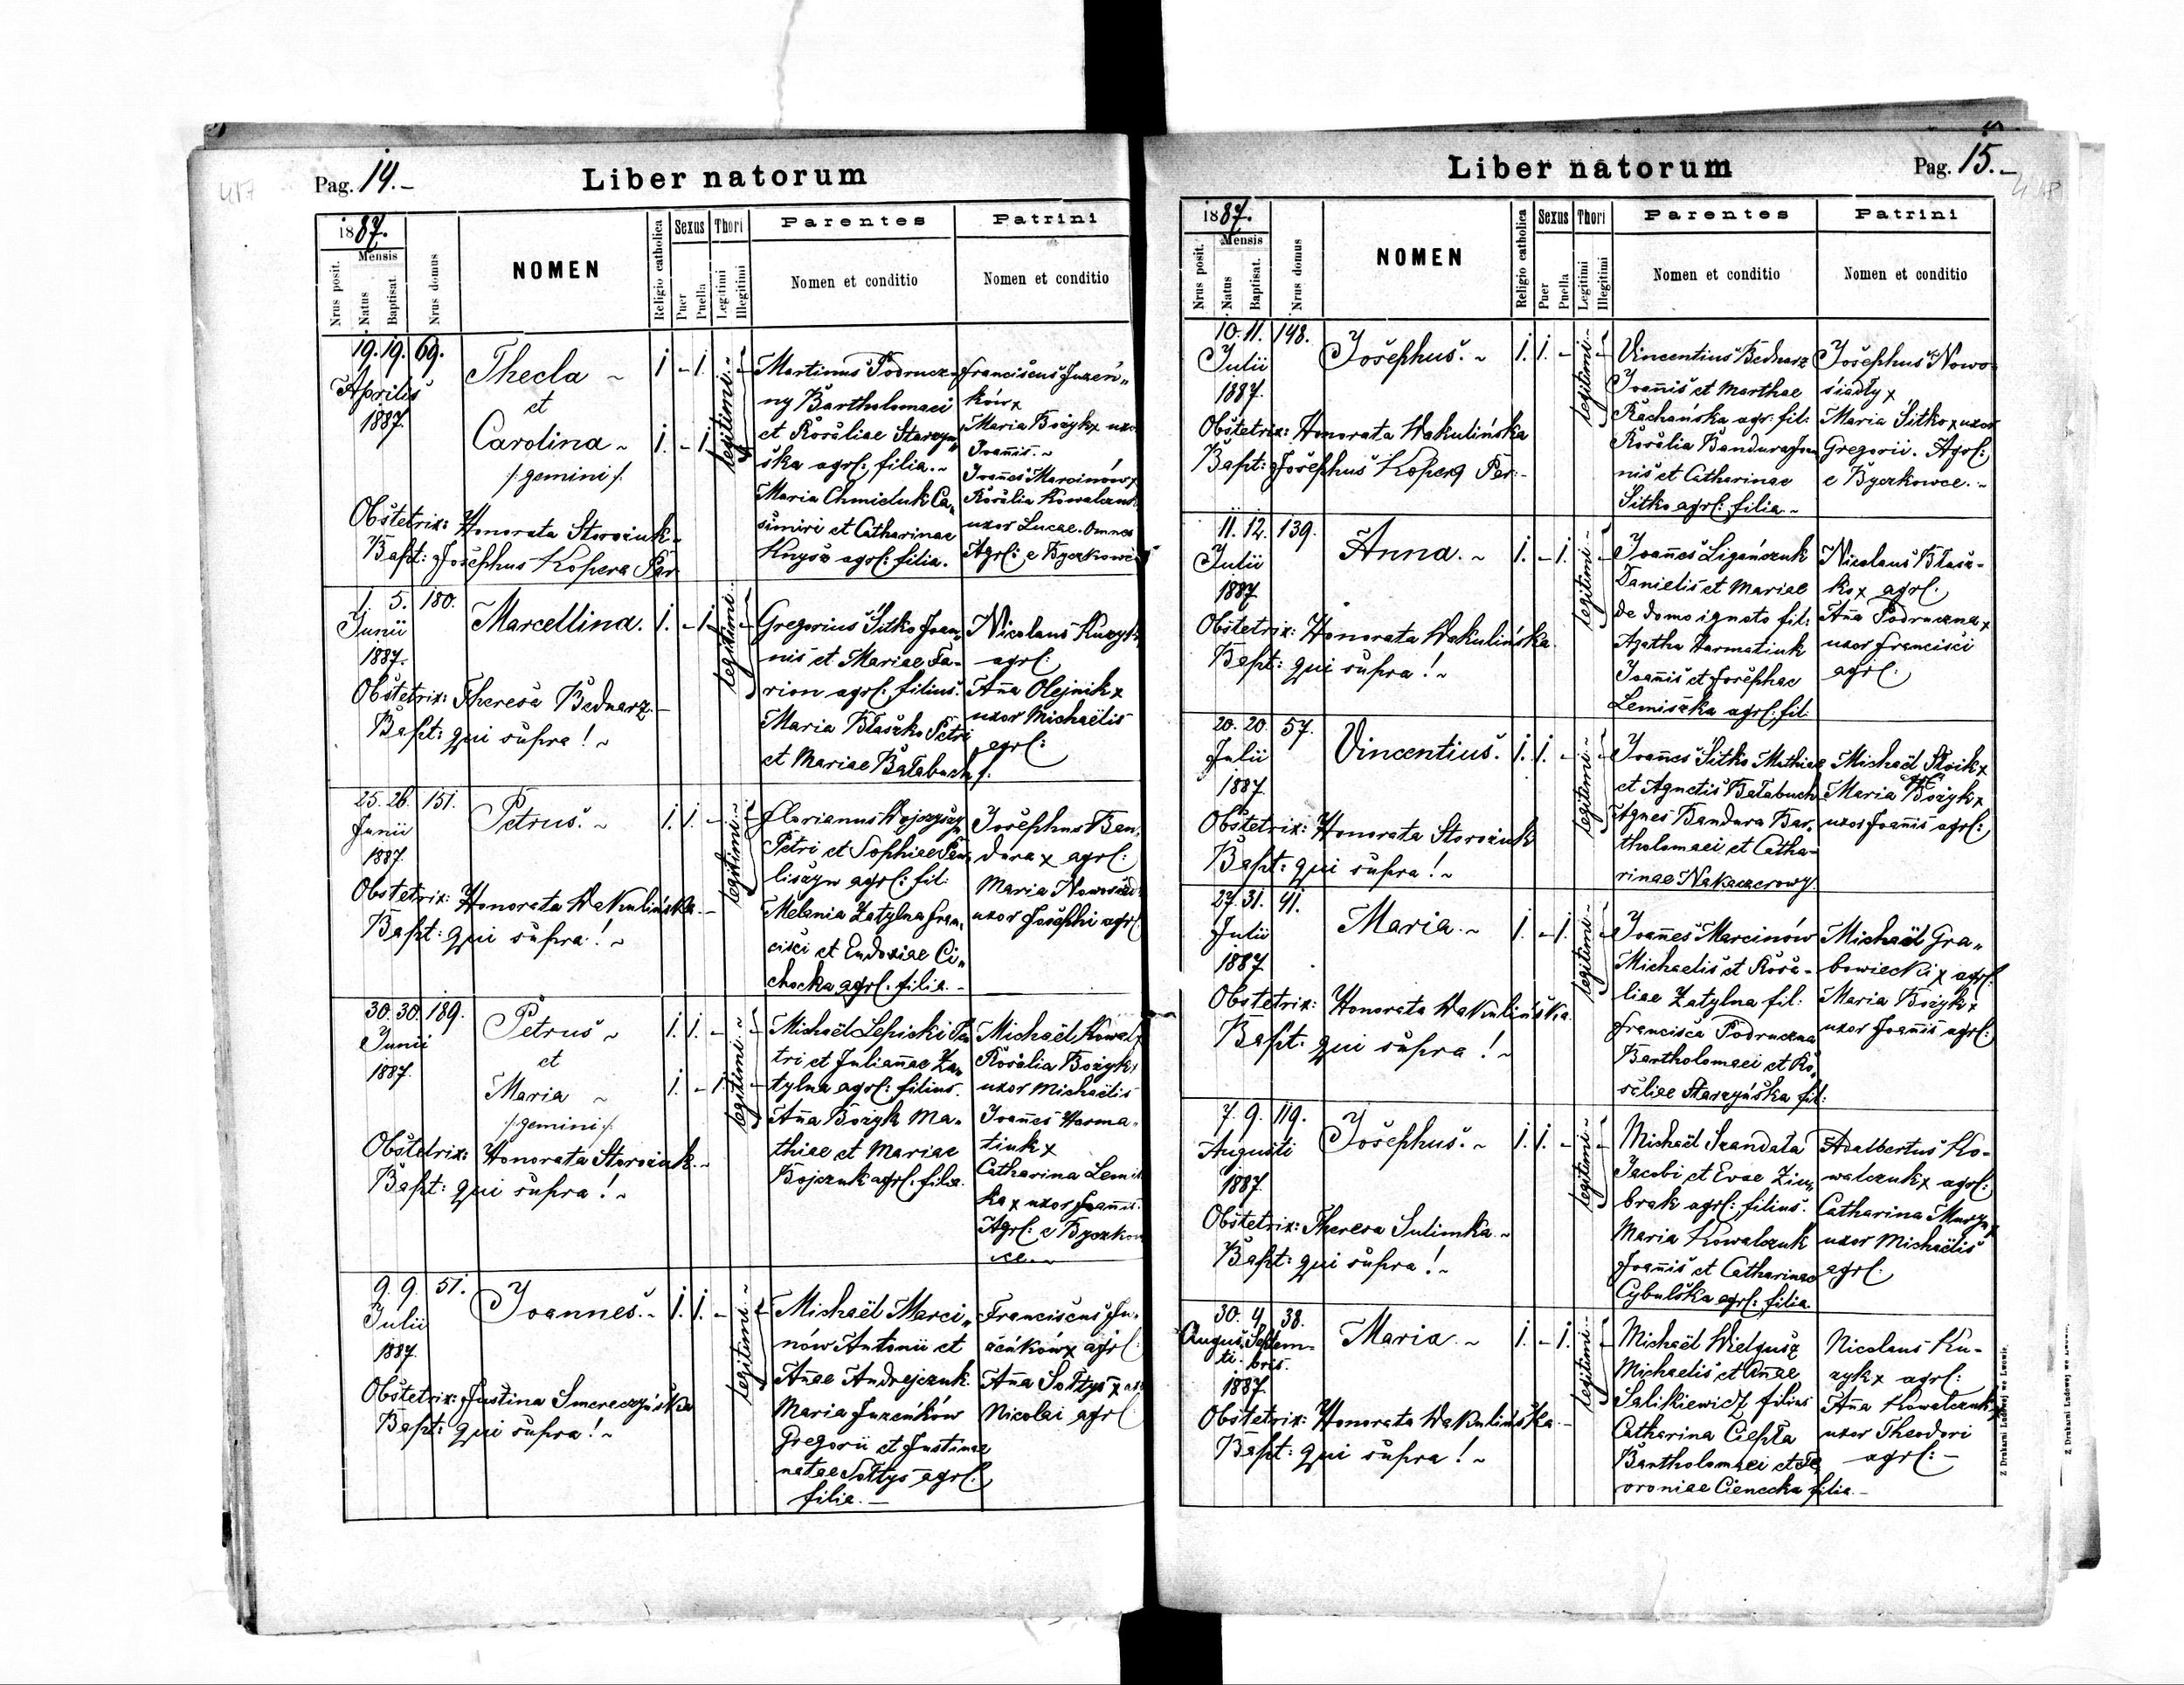 Pag. 14. –
Liber natorum
1887.
Mensis
Nrus posit.
Natus
Baptisat.
Nrus domus
NOMEN
Religio catholica
Sexus
Puer
Puella
Thori
Legitimi
Illegitimi
Parentes
Nomen et conditio
Patrini
Nomen et conditio
19. 19. 69.
Aprilis
1887.
Thecla ~
et
Carolina ~
/gemini/.
1 – 1.
1. – 1.
legitimi ~
Obstetrix: Honorata Storożuk ~
Bapt: Josephus Kopera Par
Martinus Podrucz-
ny Bartholomaei
et Rosaliae Starzyń„
ska agrl: filia. ~
Maria Chmieluk Ca„
simiri et Catharinae
Knysz agrl: filia.
Franciscus Juzeń„
ków x
Maria Bożyk x uxo
Joannis. ~
Joannes Marcinów x
Rosalia Kowalczuk
uxor Lucae. Omnes
Agrl: e Byczkowce
1. 5. 180.
Junii
1887.
Marcellina.
1. – 1.
legitimi ~
Obstetrix: Theresa Bednarz –
Bapt: qui supra! ~
Gregorius Sitko Joan„
nis et Mariae Fa-
rion agrl: filius.
Maria Błaszko Petri
et Mariae Bałabuch f.
Nicolaus Kuzyk
agrl:
Anna Olejnik x
uxor Michaëlis
agrl:
25. 26. 151.
Junii
1887.
Petrus. ~
1. 1. –
legitimi ~
Obstetrix: Honorata Wakulińska. –
Bapt: qui supra! ~
Florianus
Petri et Sophiae
liszyn agrl: fil:
Melania Zatylna Fran„
cisci et Eudoxiae Ci„
chocka agrl. filia. –
Josephus Ban„
dura x agrl:
Maria
uxor Josephi agrl
30. 30. 189.
Junii
1887.
Petrus ~
et
Maria ~
/gemini/
1. 1. –
1. – 1
legitimi ~
Obstetrix: Honorata Storożuk. ~
Bapt: qui supra! ~
Michaël Lepicki Pe
tri et Juliannae Za„
tylna agrl: filius.
Anna Bożyk Ma„
thiae et Mariae
Bojczuk agrl. filia.
Michaël Kowal x
Rosalia Bożyk
uxor Michaëlis
Joannes Harma„
tiuk x
Catharina Lemisz
ka x uxor Joannis.
Agrl: e Byczkow
ce. ~
9. 9. 51.
Julii
1887.
Joannes. ~
1. 1. –
legitimi ~
Obstetrix: Justina Smereczyńska
Bapt: qui supra! ~
Michaël Marci„
nów Antonii et
Annae Andrejczuk.
Maria Juzeńków
Gregorii et Justinae
natae Sołtys agrl:
filia. –
Franciscus Ju„
zeńków x agrl:
Anna Sołtys x uxo
Nicolai agrl
Liber natorum
Pag. 15. –
1887.
Mensis
Nrus posit.
Natus
Baptisat.
Nrus domus
NOMEN
Religio catholica
Sexus
Puer
Puella
Thori
Legitimi
Illegitimi
Parentes
Nomen et conditio
Patrini
Nomen et conditio
10. 11. 148.
Julii
1887.
Josephus. ~
1. 1. –
legitimi ~
Obstetrix: Honorata Wakulińska
Bapt: Josephus Kopera Par: –
Vincentius Bednarz
Joannis et Marthae
Rachańska agr: fil:
Rosalia Bandura Joan
nis et Catharinae
Sitko agrl: filia ~
Josephus Nowo„
siadły x
Maria Sitko x uxor
Gregorii. Agrl:
e Byczkowce. ~
11. 12. 139.
Julii
1887
Anna. ~
1. – 1.
legitimi ~
Obstetrix: Honorata Wakulińska.
Bapt: qui supra! ~
Joannes Ligańczuk
Danielis et Mariae
de domo ignoto fil:
Agatha Harmatiuk
Joannis et Josephae
Lemiszka agrl: fil:
Nicolaus Błasz-
ko x agrl.
Anna Podruczna x
uxor Francisci
agrl.
20. 20. 57.
Julii
1887
Vincentius.
1. 1. –
legitimi ~
Obstetrix: Honorata Storożuk
Bapt: qui supra! ~
Joannes Sitko Mathiae
et Agnetis Bałabuch
Agnes Bandura Bar„
tholomaei et Catha-
rinae
Michaël
Maria Bożyk x
uxor Joannis agrl:
27. 31. 41.
Julii
1887
Maria. ~
1. – 1.
legitimi ~
Obstetrix: Honorata Wakulińska.
Bapt: qui supra! ~
Joannes Marcinów
Michaelis et Rosa-
liae Zatylna fil:
Francisca Podruczna
Bartholomaei et Ro„
saliae Starzyńska fil:
Michaël Gra„
bowiecki x agrl:
Maria Bożyk x
uxor Joannis agrl:
7. 9. 119.
Augusti
1887.
Josephus. ~
1. 1. –
legitimi ~
Obstetrix: Theresa Sulimka ~
Bapt: qui supra! ~
Michaël Szandała
Jacobi et Evae Zim„
brak agrl: filius.
Maria Kowalczuk
Joannis et Catharinae
Cybulska agrl: filia.
Adalbertus Ko-
walczuk x agrl:
Catharina
uxor Michaëlis
agrl.
30. 4. 38.
Augus„ Septem-
ti. bris.
1887
Maria. ~
1. – 1.
legitimi ~
Obstetrix: Honorata Wakulińska. –
Bapt: qui supra! ~
Michaël Wielgusz
Michaelis et Annae
Salikiewicz filius
Catharina Ciepła
Bartholomaei et
oroniae Cienecka filia –
Nicolaus Ku-
zyk x agrl:
Anna Kowalczuk x
uxor Theodori
agrl: –
Z Drukarni Ludowej we Lwowie.